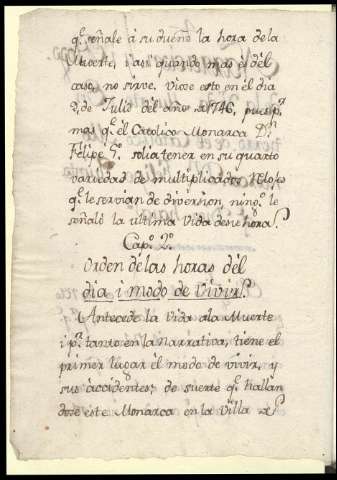 q.e señale à su dueño la hora dela
Muerte, i asi quando mas es dèl
caso, no sirve, viose esto en el dia
9, de Julio del año de 1746, pues p.r
mas q.e el Catolico Monarca D.n
Felipe 5.o solia tener en su quarto
variedad de multiplicados Relojes
q.e le servian de diversion, ning.o le
señalò la ultima Vida dese hora.
Cap.o 2.o
Orden delas horas dèl
dia i modo de vivir.
Antecede la Vida ala Muerte
i p.r tanto en la narrativa, tiene el
primer lugar el modo de vivir, y
sus àccidentes; de suerte q.e hallan
dose este Monarca en la Villa de